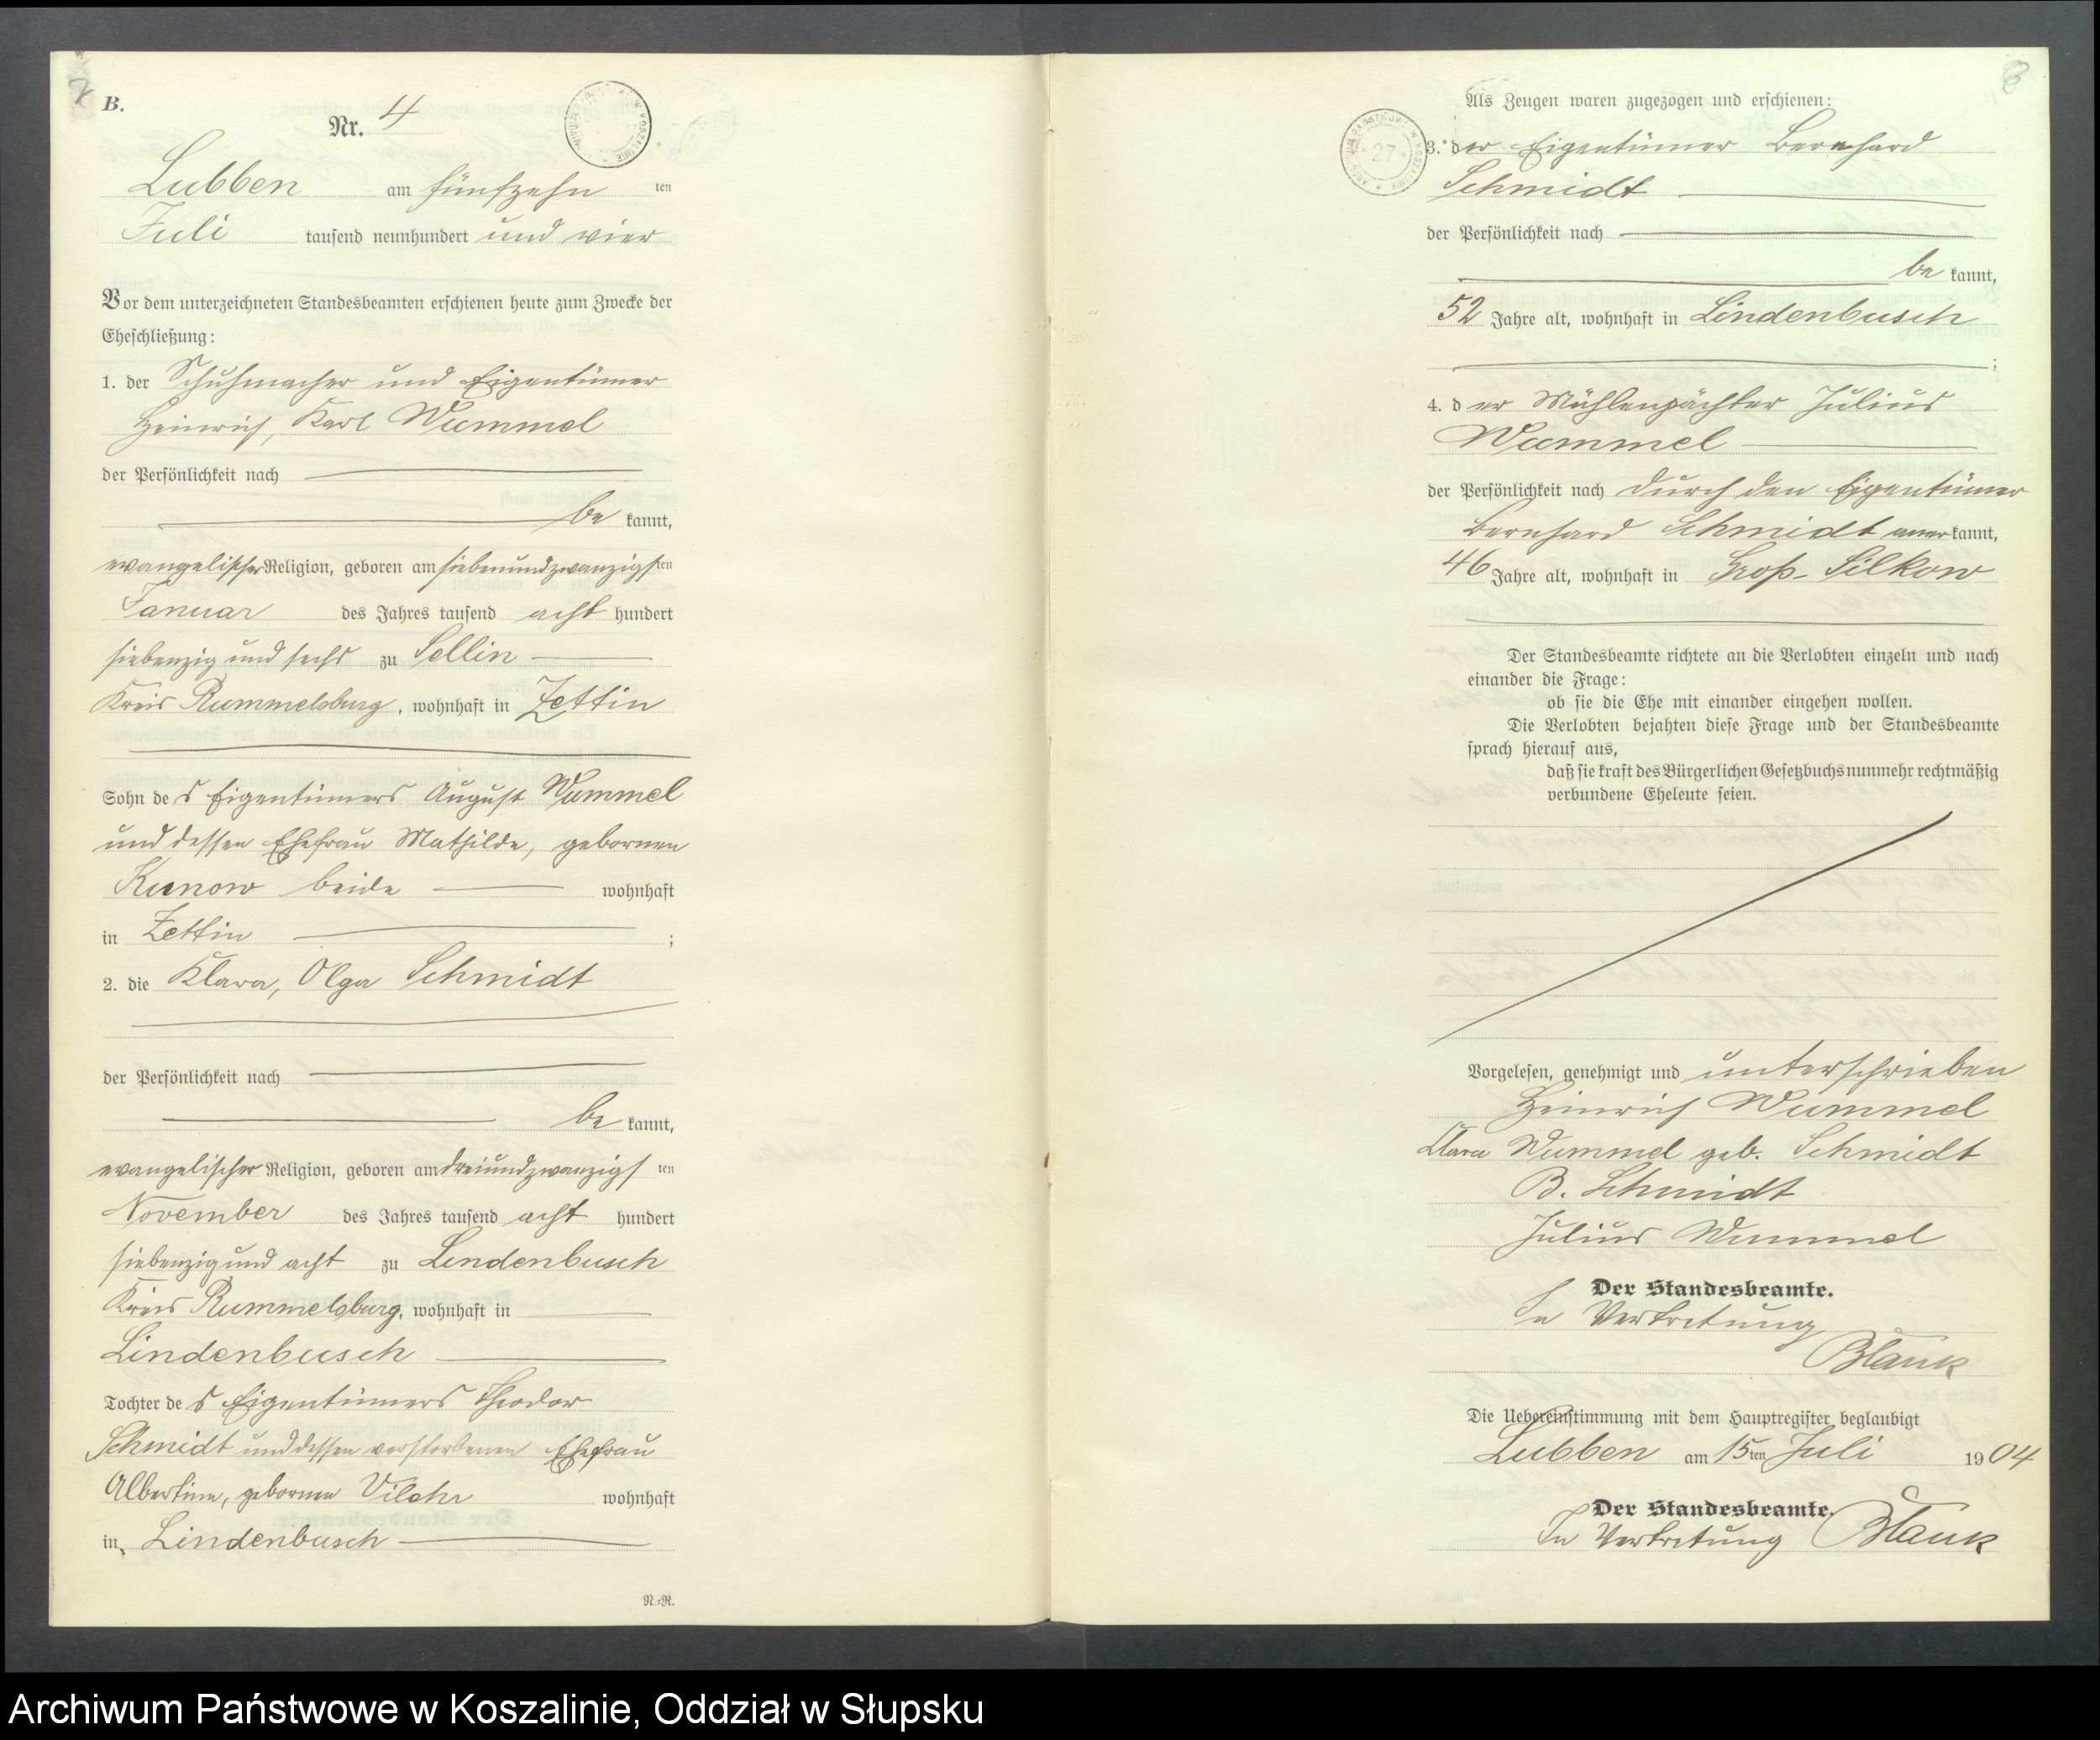 7
B.
Nr. 4
Lubben am fünfzehn ten
Juli tausend neunhundert und vier
Vor dem unterzeichneten Standesbeamten erschienen heute zum Zwecke der
Eheschließung:
1. der Schuhmacher und Eigentümer
Heinrich, Karl Wummel
der Persönlichkeit nach
be kannt,
evangelischer Religion, geboren am siebenundzwanzigsten
Januar des Jahres tausend acht hundert
siebenzig und sechs zu Sellin
Kreis Rummelsburg, wohnhaft in Zettin
Sohn des Eigentümers August Wummel
und dessen Ehefrau Mathilde, gebornen
Kunow beide wohnhaft
in Zettin ;
2. die Klara, Olga Schmidt
der Persönlichkeit nach
be kannt,
evangelischer Religion, geboren am dreiundzwanzigsten
November des Jahres tausend acht hundert
siebenzig und acht zu Lindenbusch
Kreis Rummelsburg, wohnhaft in
Lindenbusch
Tochter des Eigentümers Theodor
Schmidt und dessen verstorbenen Ehefrau
Albertine, gebornen wohnhaft
in Lindenbusch
N.-R.
8
Als Zeugen waren zugezogen und erschienen:
27
3. der Eigentümer Bernhard
Schmidt
der Persönlichkeit nach
be kannt,
52 Jahre alt, wohnhaft in Lindenbusch
;
4. der Mühlenpächter Julius
Wummel
der Persönlichkeit nach durch den Eigentümer
Bernhard Schmidt anerkannt,
46 Jahre alt, wohnhaft in Groß-Silkow
Der Standesbeamte richtete an die Verlobten einzeln und nach
einander die Frage:
ob sie die Ehe mit einander eingehen wollen.
Die Verlobten bejahten diese Frage und der Standesbeamte
sprach hierauf aus,
daß sie kraft des Bürgerlichen Gesetzbuchs nunmehr rechtmäßig
verbundene Eheleute seien.
Vorgelesen, genehmigt und unterschrieben
Heinrich Wummel
Klara Wummel geb. Schmidt
B. Schmidt
Julius Wummel
Der Standesbeamte.
In Vertretung
Blank
Die Uebereinstimmung mit dem Hauptregister beglaubigt
Lubben am 15ten Juli 1904
Der Standesbeamte.
In Vertretung Blank
Archiwum Państwowe w Koszalinie, Oddział w Słupsku